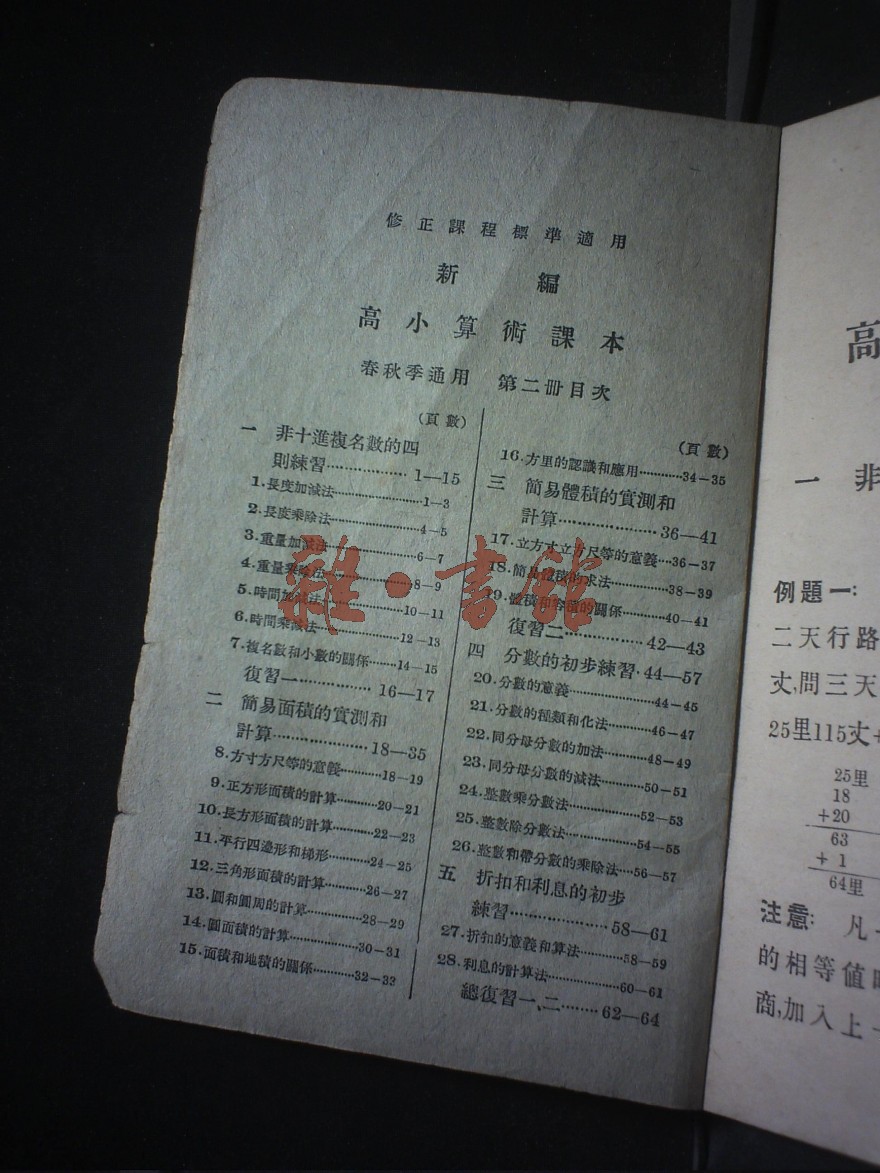 修正課程標準適用
新編
高小算術課本
春秋季通用 第二冊目次
(頁數)
一 非十進複名數的四
則練習………………1—15
1.長度加減法………………1—3
2.長度乘除法………………4—5
3.重量加減法………………6—7
4.重量乘除法………………8—9
5.時間加減法………………10—11
6.時間乘減法………………12—13
7.複名數和小數的關係………14—15
復習一………………16—17
二 簡易面積的實測和
計算………………18—35
8.方寸方尺等的意義………18—19
9.正方形面積的計算………20—21
10.長方形面積的計算………22—23
11.平行四邊形和梯形………24—25
12.三角形面積的計算………26—27
13.圓和圓周的計算………28—29
14.圓面積的計算………30—31
15.面積和地積的關係………32—33
(頁數)
16.方里的認識和應用………34—35
三 簡易體積的實測和
計算………………36—41
17.立方寸立方尺等的意義…36—37
18.簡易體積的求法………38—39
19.體積和容積的關係………40—41
復習二………………42—43
四 分數的初步練習·44—57
20.分數的意義………………44—45
21.分數的種類和化法………46—47
22.同分母分數的加法………48—49
23.同分母分數的減法………50—51
24.整數乘分數法………52—53
25.整數除分數法………54—55
26.整數和帶分數的乘除法…56—57
五 折扣和利息的初步
練習………………58—61
27.折扣的意義和算法………58—59
28.利息的計算法………60—61
總復習一、二………62—64
雜·書館
高
一 非
例題一:
二天行路
丈,問三天
25里115丈+
25里
18
+20
63
+ 1
64里
注意: 凡一
的相等值
商,加入上一